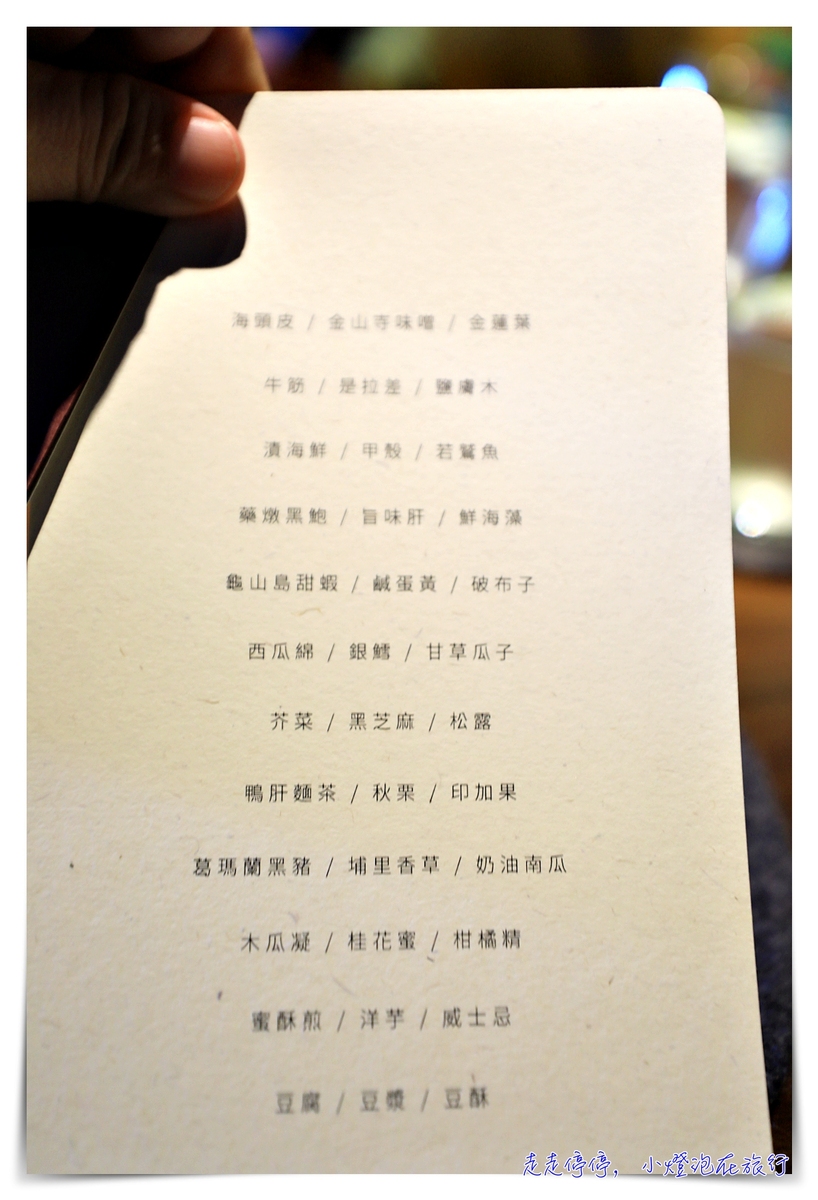 海頭皮 / 金山寺味噌 / 金蓮葉
牛筋 / 是拉差 / 鹽膚木
漬海鮮 / 甲殼 / 若鷲魚
藥燉黑鮑 / 旨味肝 / 鮮海藻
龜山島甜蝦 / 鹹蛋黃 / 破布子
西瓜綿 / 銀鱈 / 甘草瓜子
芥菜 / 黑芝麻 / 松露
鴨肝麵茶 / 秋栗 / 印加果
葛瑪蘭黑豬 / 埔里香草 / 奶油南瓜
木瓜凝 / 桂花蜜 / 柑橘精
蜜酥煎 / 洋芋 / 威士忌
豆腐 / 豆漿 / 豆酥
走走停停，小燈泡在旅行